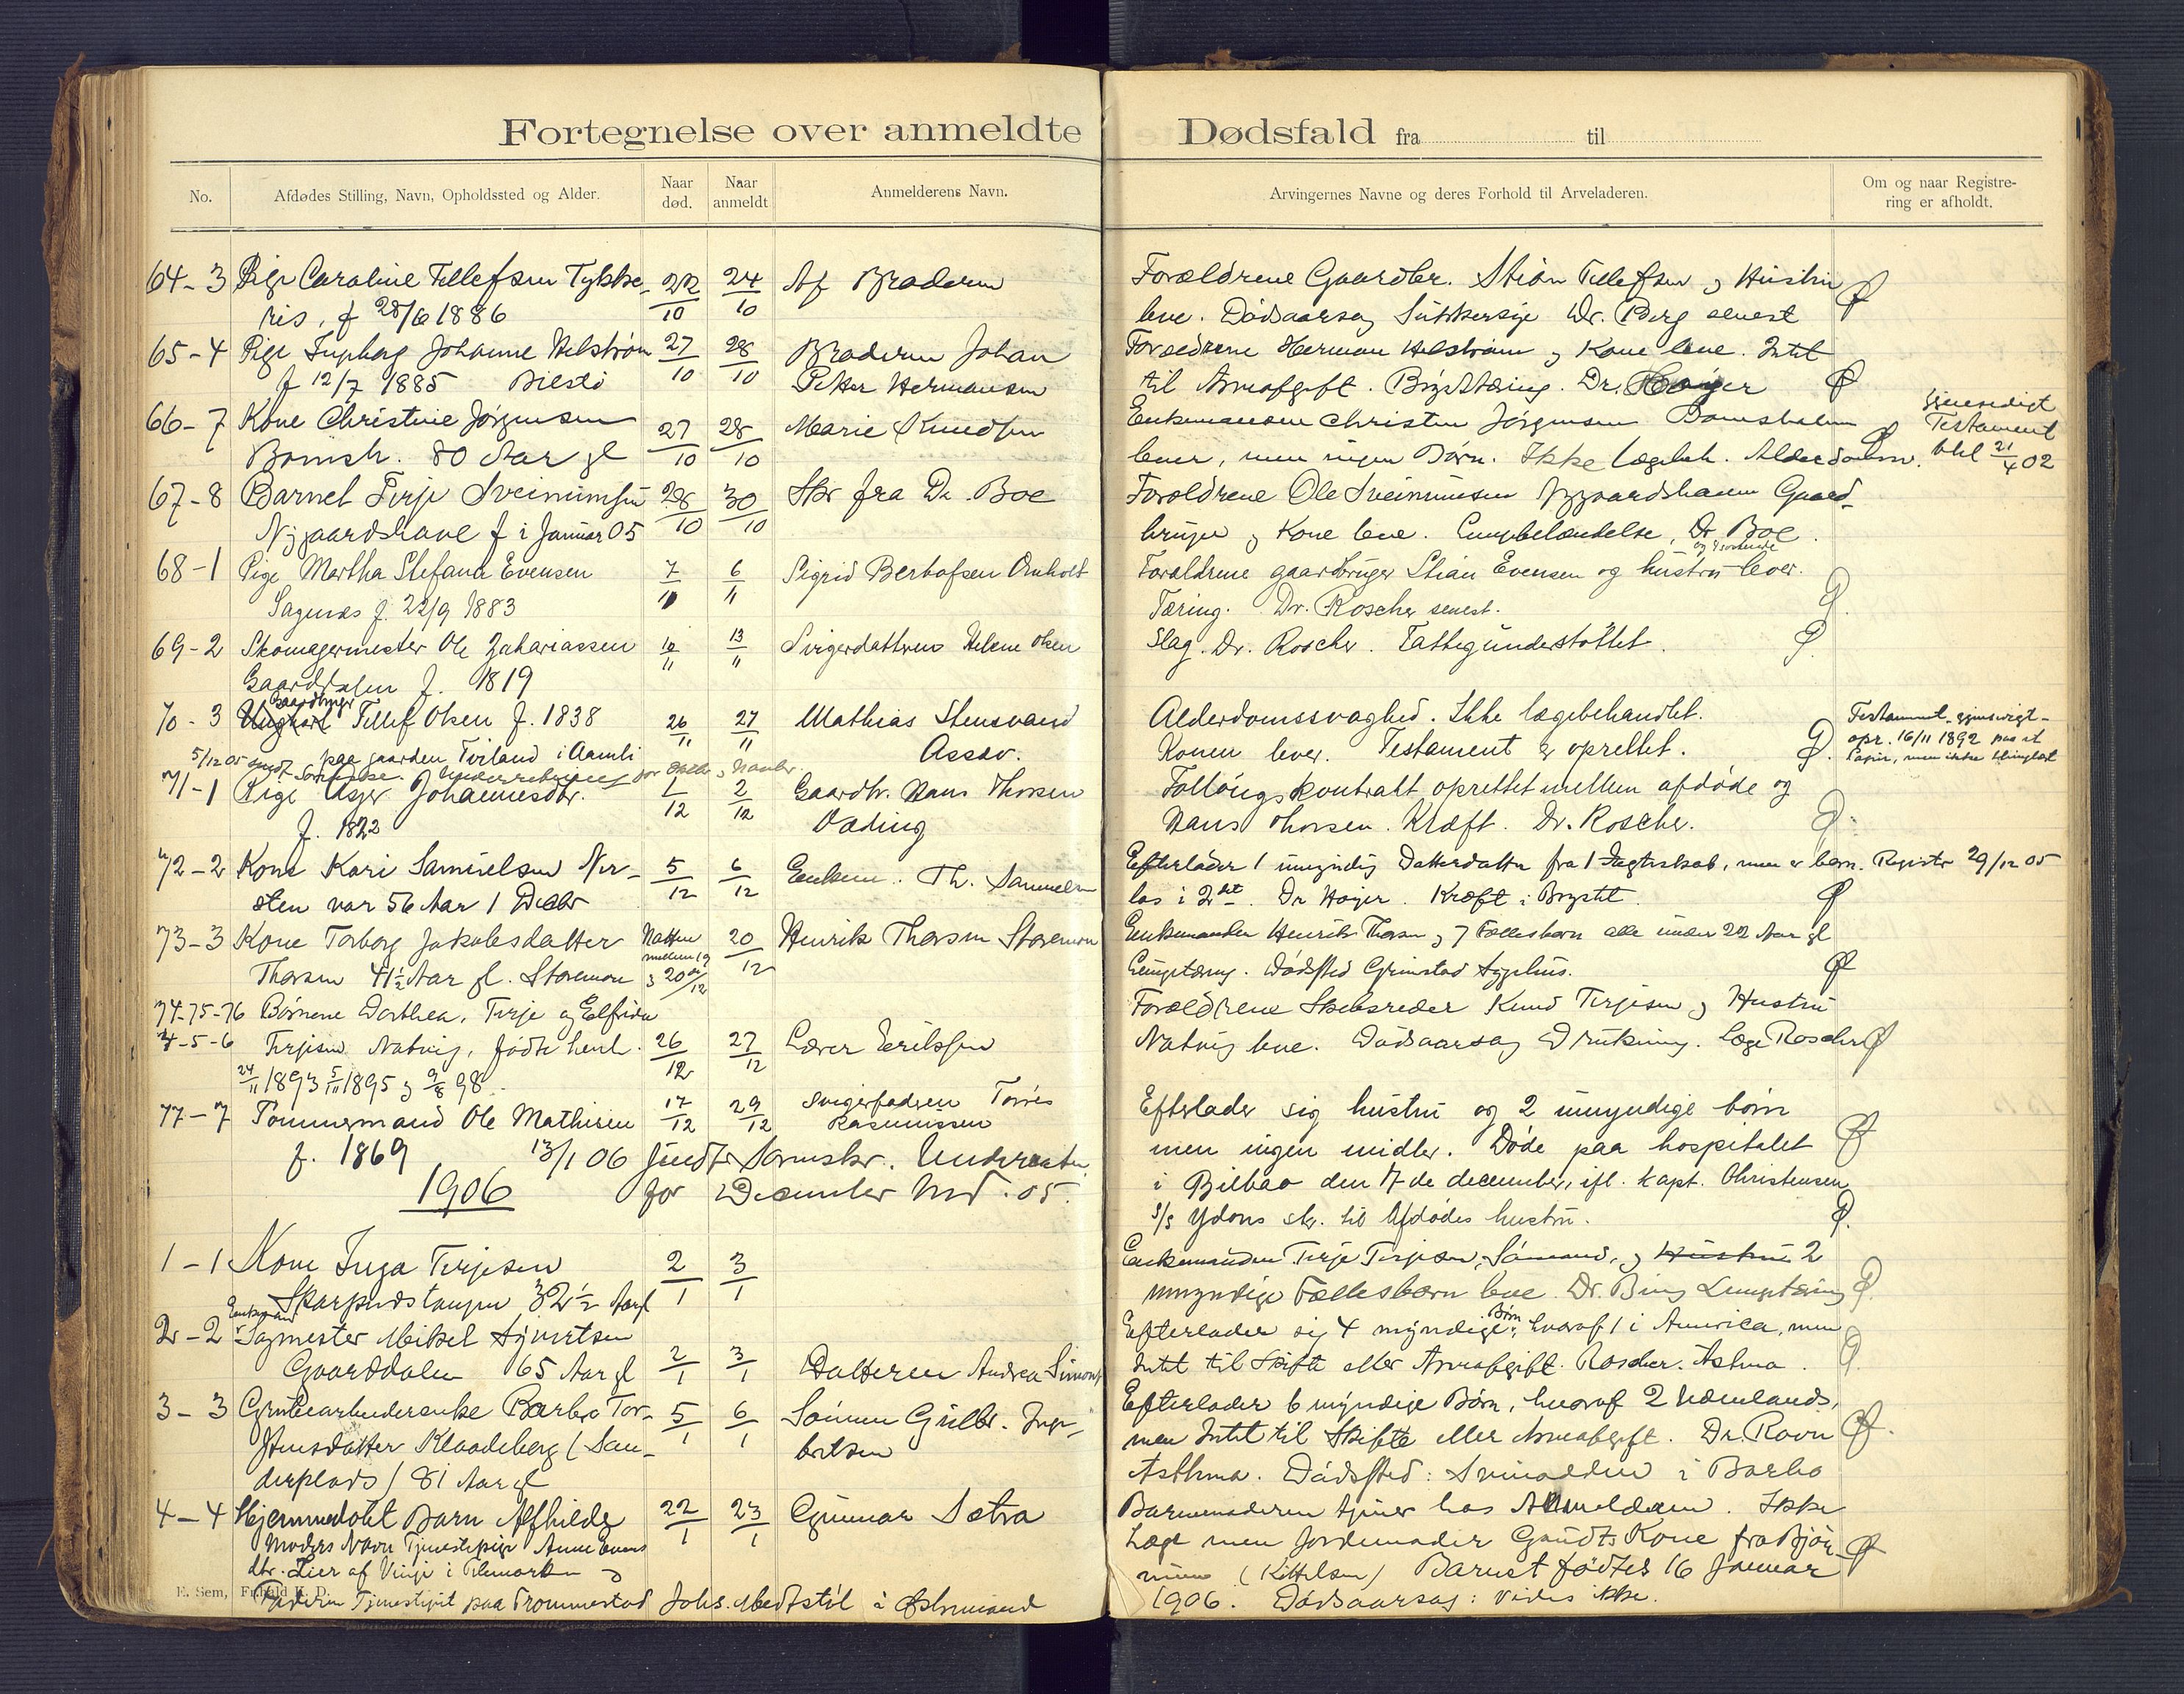 Fortegnelse over anmeldte Dødsfald fra til
No. Afdødes Stilling, Navn, Opholdssted og Alder. Naar død. Naar anmeldt Anmelderens Navn. Arvingernes Navne og deres Forhold til Arveladeren. Om og naar Registrering er afholdt.
64-3 Pige Caroline Tellefsen 22/10 24/10 Af Broderen Forældrene Gaardbr. Stian Tellefsen og Hustru
f 28/6 1886 leve. Dødsaarsag Sukkersyge Dr. Berg senest
65-4 Pige Ingeborg Johanne Helstrøm 27/10 28/10 Broderen Johan Forældrene Herman Helstrøm og Kone leve. Intet
f 12/7 1885 Petter Hermansen til Arveafgift. Brysttæring. Dr. Høyer
66-7 Kone Christine Jørgensen 27/10 28/10 Marie Knudsen Enkemanden Christen Jørgensen Bomsholmen gjensidigt
Bomsh. 80 Aar gl lever, men ingen Børn. Ikke lægebeh. Alderdomsv. Testament
21/4 02
67-8 Barnet Terje Sveinunsen 28/10 30/10 Skr fra Dr. Boe Forældrene Ole Sveinunsen Nygaardshaven Gaard-
Nygaardshave f i Januar 05 bruger og Kone leve. Lungebetændelse, Dr Boe
68-1 Pige Martha Stefana Evensen 7/11 6/11 Sigrid Bertofsen Ørnholt Forældrene gaardbruger Stian Evensen og hustru lever.
Sagenæs f. 22/9 1883 Tæring. Dr. Roscher senest.
69-2 Skomagermester Ole Zachariassen 10/11 13/11 Svigerdatteren Helene Olsen Slag. Dr. Roscher. Fattigunderstøttet.
Gaarddalen f. 1819
Gaardbruger
70-3 Ungkarl Tellef Olsen f. 1838 26/11 27/11 Mathias Stensvand Alderdomssvaghed. Ikke lægebehandlet. Testament gjensidigt
paa gaarden Tveitland i Aamli Assev. Konen lever. Testament er oprettet. opr. 16/11 1892 paa st
5/12 05 Papir, men ikke thinglæst
71-1 Pige Asger Johannesdtr. 1/12 2/12 Gaardbr. Hans Thorsen Follougskontrakt oprettet mellem afdøde og
f. 1822 Oading Hans Thorsen. Kræft. Dr. Roscher.
72-2 Kone Kari Samuelsen 5/12 6/12 Enkem. Th. Samuelsen Efterlader 1 umyndig Datterdatter fra 1 Ægteskab, men er barn- Registr 29/12 05
var 56 Aar 1 Decbr løs i 2det. Dr Høyer. Kræft i Brystet
73-3 Kone Torborg Jakobsdatter Natten mellem 19 og 20de/12 20/12 Henrik Thorsen Storemoen Enkemanden Henrik Thorsen og 7 Fællesbørn alle under 22 Aar gl
Thorsen 41½ Aar gl. Storemoen Lungetæring. Dødssted Grimstad Sygehus.
74-75-76 Børnene Dorthea, Terje og Elfrida Forældrene Skibsreder Knud Terjesen og Hustru
4-5-6 Terjesen Natvig, fødte henh. 26/12 27/12 Lærer Eriksen Natvig leve. Dødsaarsag Drukning. Læge Roscher
24/11 1893 5/11 1895 og 9/8 98.
77-7 Tømmermand Ole Mathisen 17/12 29/12 Svigerfadren Tønnes Rasmussen Efterlader sig hustru og 2 umyndige børn
f. 1869 13/1 06 Sendt Sorenskr. Underretn. men ingen midler. Døde paa hospitalet
1906 for December Md. 05. i Bilbao den 17de december, ifl. kapt. Christensen
s/s Ydons skr. til Afdødes hustru.
1-1 Kone Inga Terjesen 2/1 3/1 Enkemanden Terje Terjesen, Sømand, og Hustru 2
32½ Aar gl umyndige Fællesbørn leve. Dr. Bing Lungetæring
Enkemand
2-2 Sagmester Mikkel Syvertsen 2/1 3/1 Datteren Andrea Simons Efterlader sig 4 myndige Børn, hvoraf 1 i America, men
Gaarddalen 65 Aar gl Intet til Skifte eller Arveafgift. Roscher. Astma.
3-3 Grubearbeiderenke Barbro Tor- 5/1 6/1 Sønnen Gulbr. Inge- Efterlader 6 myndige Børn, hvoraf 2 udenlands,
stensdatter Klodeberg (San- bretsen men Intet til Skifte eller Arveafgift. Dr. Ravn
derplads) 81 Aar gl Asthma. Dødssted: Svinodden i Barbo
4-4 Hjemmedøbt Barn Alfhilde 22/1 23/1 Gunnar Sætra Barnemoderen tjener hos Anmelderen. Ikke
Moders Navn Tjenestepige Anne Evens- Læge men Jordemoder Gundts Kone fra Bjor-
dtr. Lier af Vinje i Telemarken og (Kittelsen) Barnet fødtes 16 Januar
E. Sem, Fr.hald K. D.
Faderen Tjenestegut paa Frommestad Johs. Medtstøl i 1906. Dødsaarsag: vides ikke.